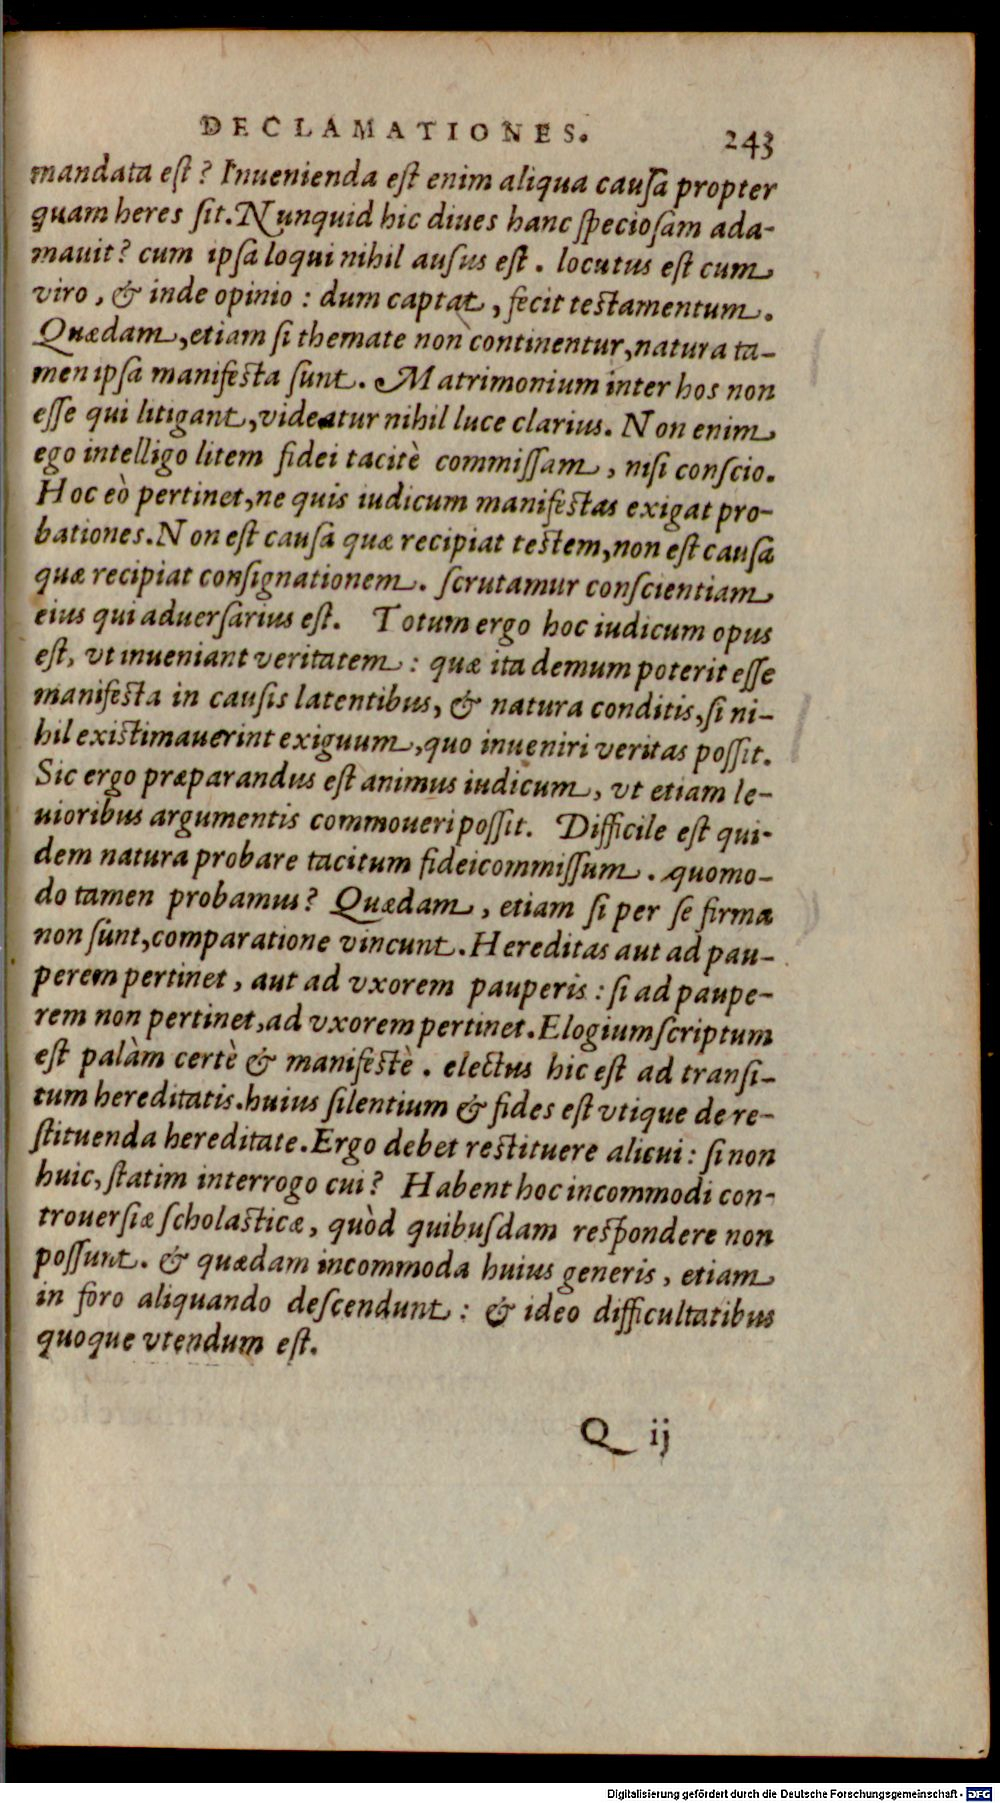 DECLAMATIONES. 243
mandata eſt? Inuenienda eſt enim aliqua cauſa propter
quam heres ſit. Nunquid hic diues hanc ſpecioſam ada-
mauit? cum ipſa loqui nihil auſus eſt. locutus eſt cum
viro, & inde opinio: dum captat, fecit teſtamentum.
Quædam, etiam ſi themate non continentur, natura ta-
men ipſa manifeſta ſunt. Matrimonium inter hos non
eſſe qui litigant, videatur nihil luce clarius. Non enim
ego intelligo litem fidei tacitè commiſſam, niſi conſcio.
Hoc eò pertinet, ne quis iudicum manifeſtas exigat pro-
bationes. Non eſt cauſa quæ recipiat teſtem, non eſt cauſa
quæ recipiat conſignationem. ſcrutamur conſcientiam
eius qui aduerſarius eſt. Totum ergo hoc iudicum opus
eſt, vt inueniant veritatem: quæ ita demum poterit eſſe
manifeſta in cauſis latentibus, & natura conditis, ſi ni-
hil exiſtimauerint exiguum, quo inueniri veritas poſſit.
Sic ergo præparandus eſt animus iudicum, vt etiam le-
uioribus argumentis commoueri poſſit. Difficile eſt qui-
dem natura probare tacitum fideicommiſſum. quomo-
do tamen probamus? Quædam, etiam ſi per ſe firma
non ſunt, comparatione vincunt. Hereditas aut ad pau-
perem pertinet, aut ad vxorem pauperis: ſi ad paupe-
rem non pertinet, ad vxorem pertinet. Elogium ſcriptum
eſt palàm certè & manifeſtè. electus hic eſt ad tranſi-
tum hereditatis. huius ſilentium & fides eſt vtique de re-
ſtituenda hereditate. Ergo debet reſtituere alicui: ſi non
huic, ſtatim interrogo cui? Habent hoc incommodi con-
trouerſiæ ſcholaſticæ, quòd quibuſdam reſpondere non
poſſunt. & quædam incommoda huius generis, etiam
in foro aliquando deſcendunt: & ideo difficultatibus
quoque vtendum eſt.
Q ij
Digitalisierung gefördert durch die Deutsche Forschungsgemeinschaft - DFG